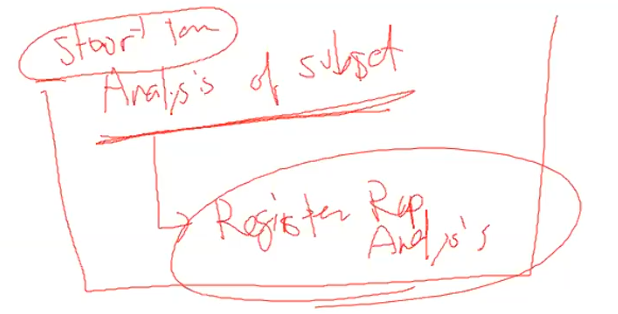 Start
Analysis of subset
Register Rep
Analysis